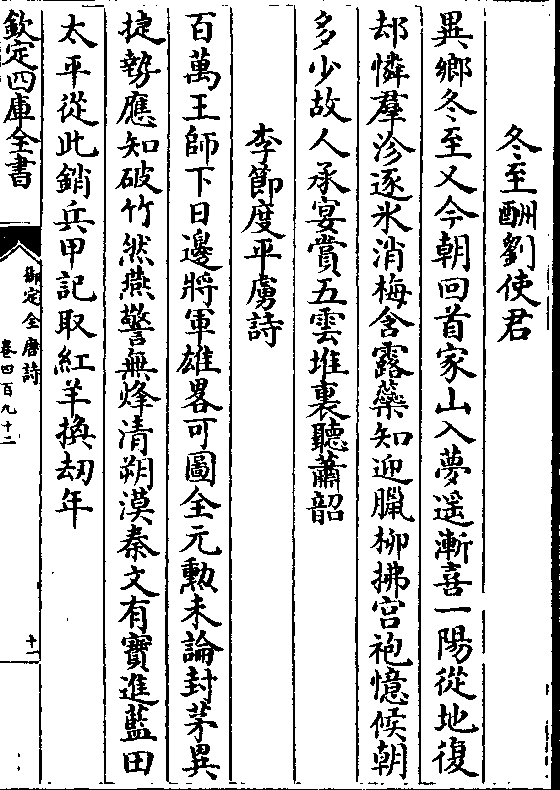 冬至酬劉使君
異鄉冬至又今朝回首家山入夢遥漸喜一陽從地復
却憐羣沴逐氷消梅含露蘂知迎臘柳拂宫袍憶候朝
多少故人承宴賞五雲堆裏聽蕭韶
李節度平虜詩
百萬王師下日邊將軍雄畧可圖全元勲未論封茅異
捷勢應知破竹然燕警無烽清朔漠秦文有寶進藍田
太平從此銷兵甲記取紅羊換刼年
欽定四庫全書
御定全唐詩
卷四百九十二
十一